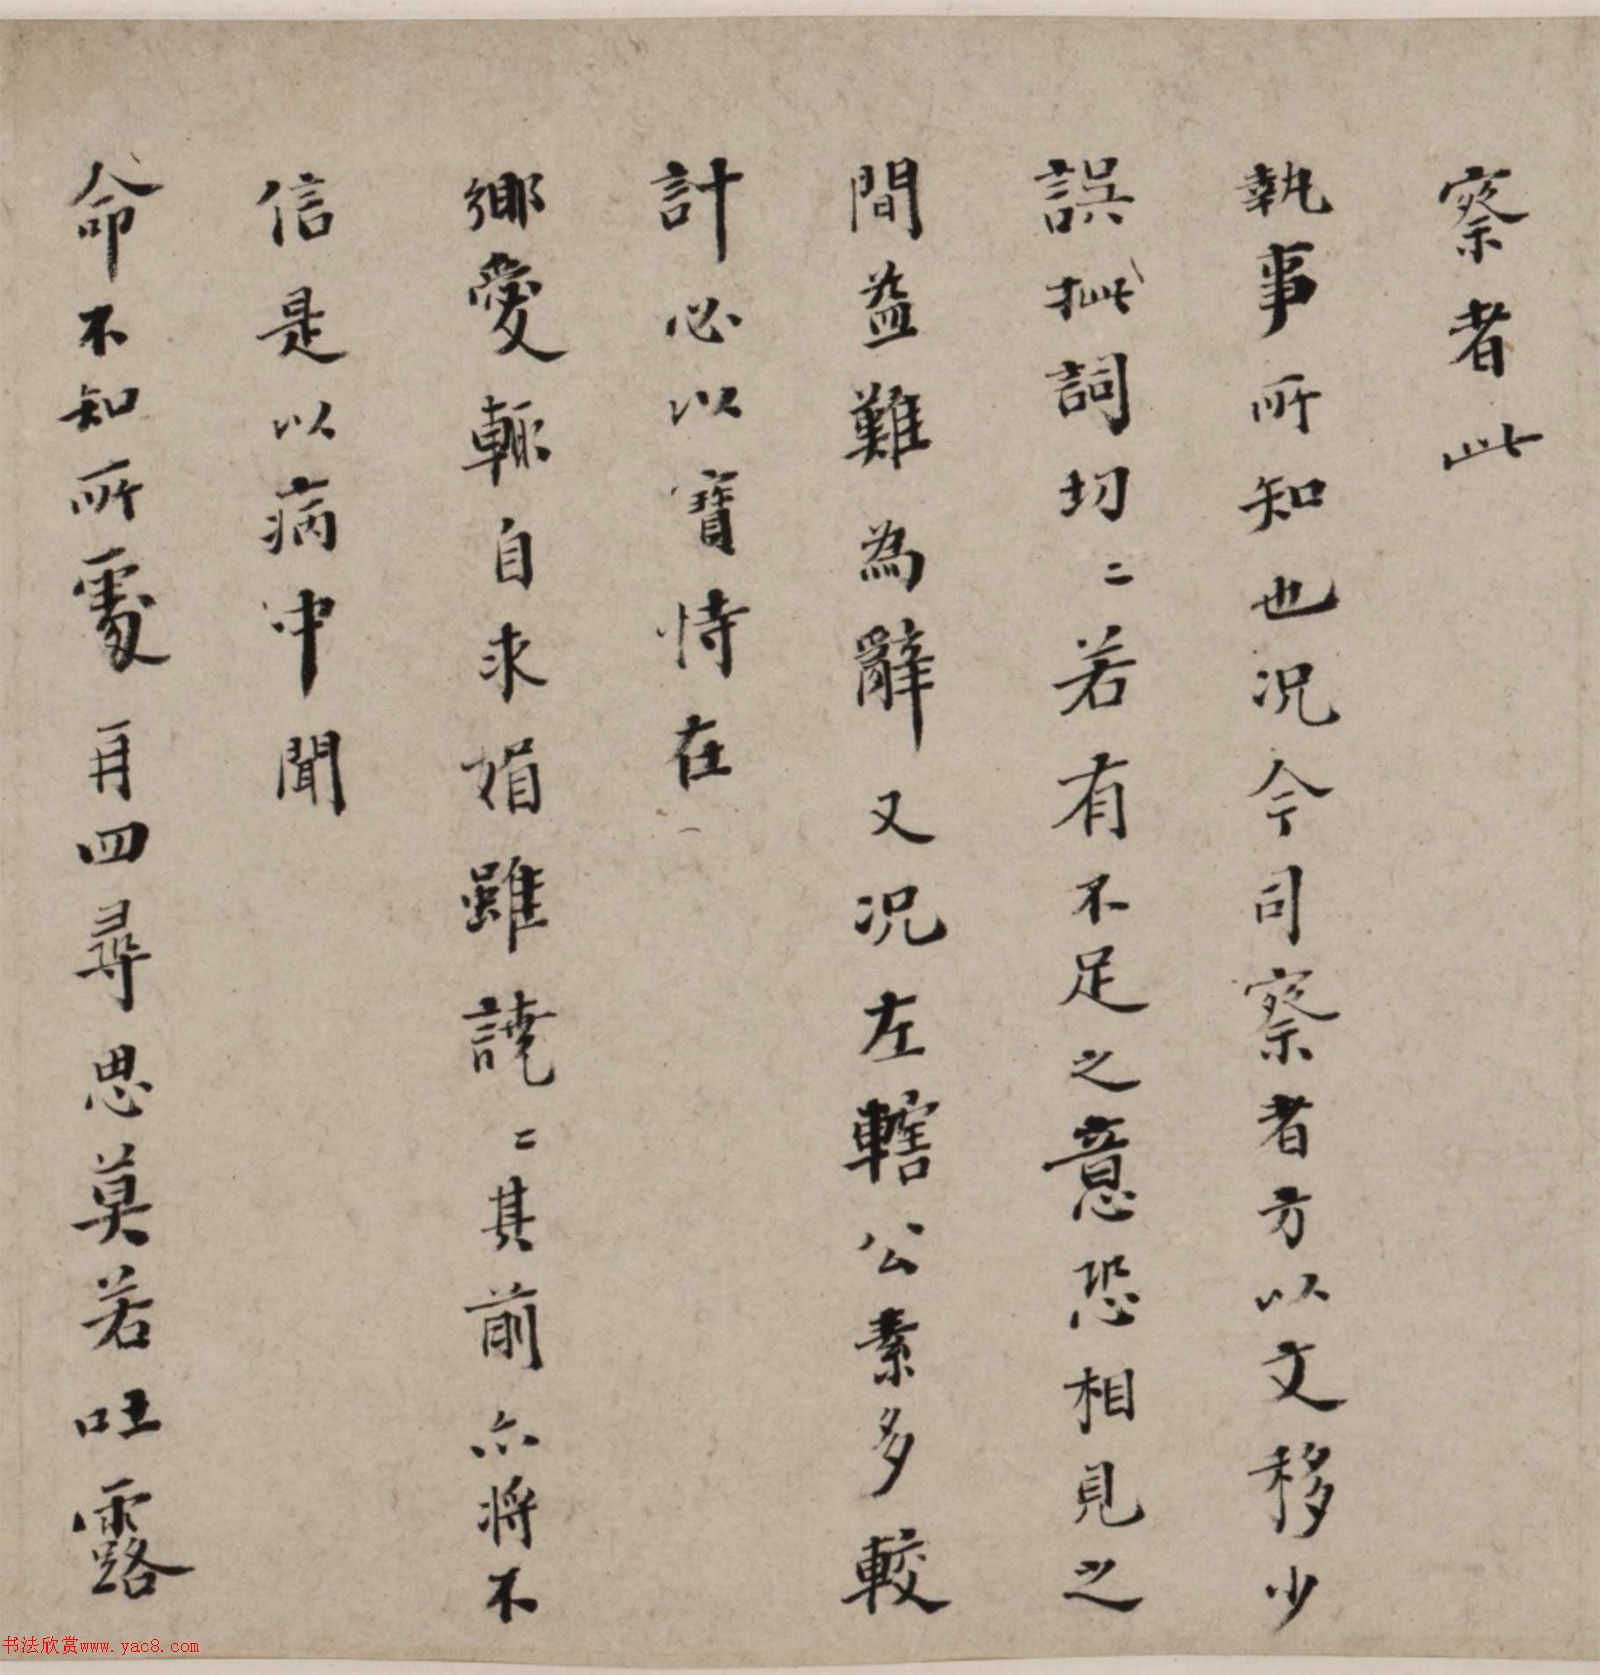 察者此
執事所知也况今司察者方以文移少
誤抛詞切〻若有不足之意恐相見之
間益難為辭又况左轄公素多較
計必以寶恃在
鄉愛輒自求媚雖譊〻其前亦將不
信是以病中聞
命不知所處再四尋思莫若吐露
书法欣赏www.yac8.com